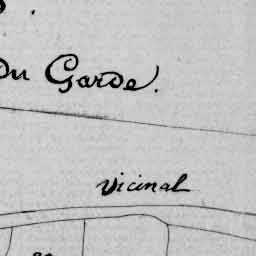 Du Garde.
Vicinal